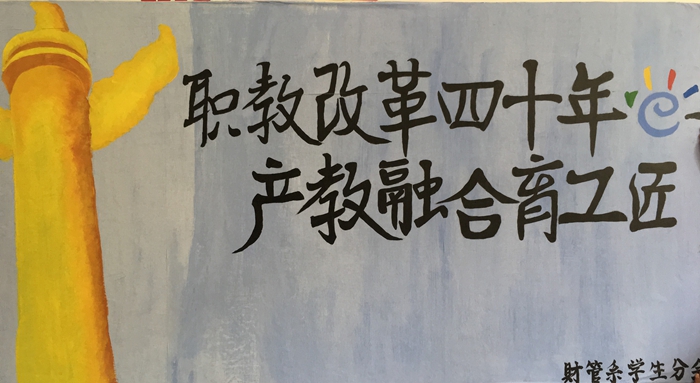 职教改革四十年
产教融合育工匠
财管系学生分会